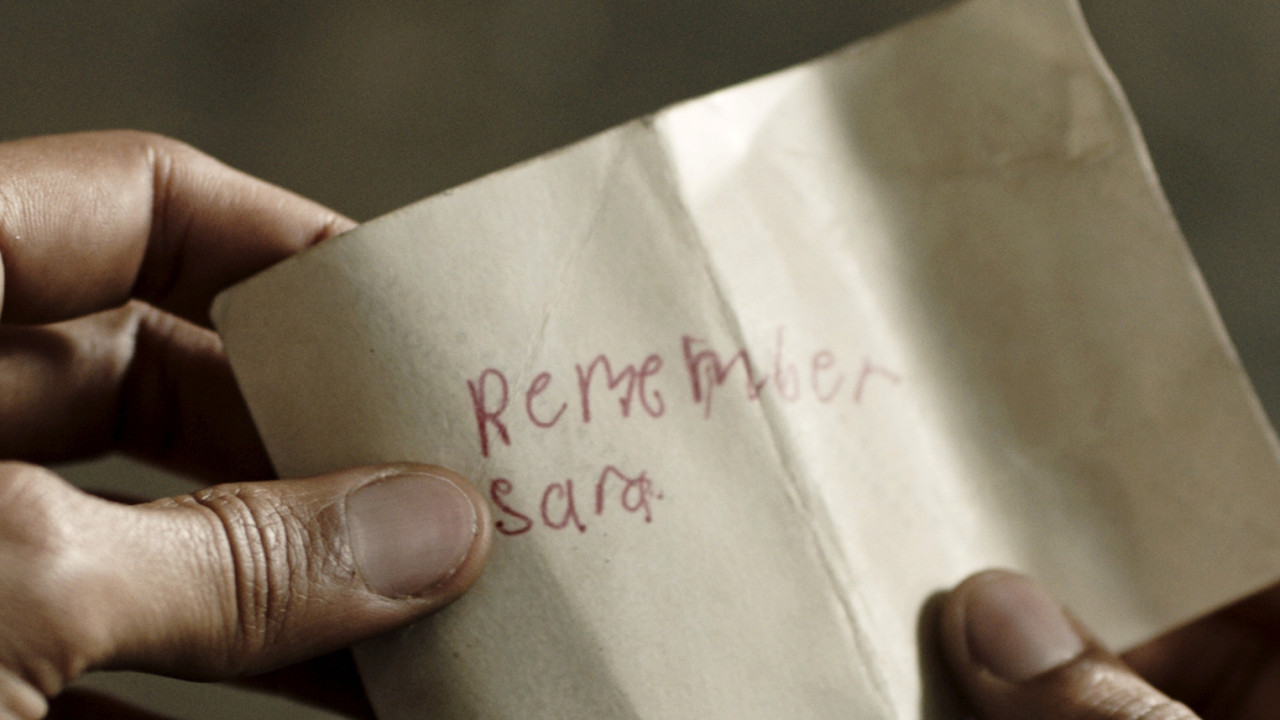 Remember
sara